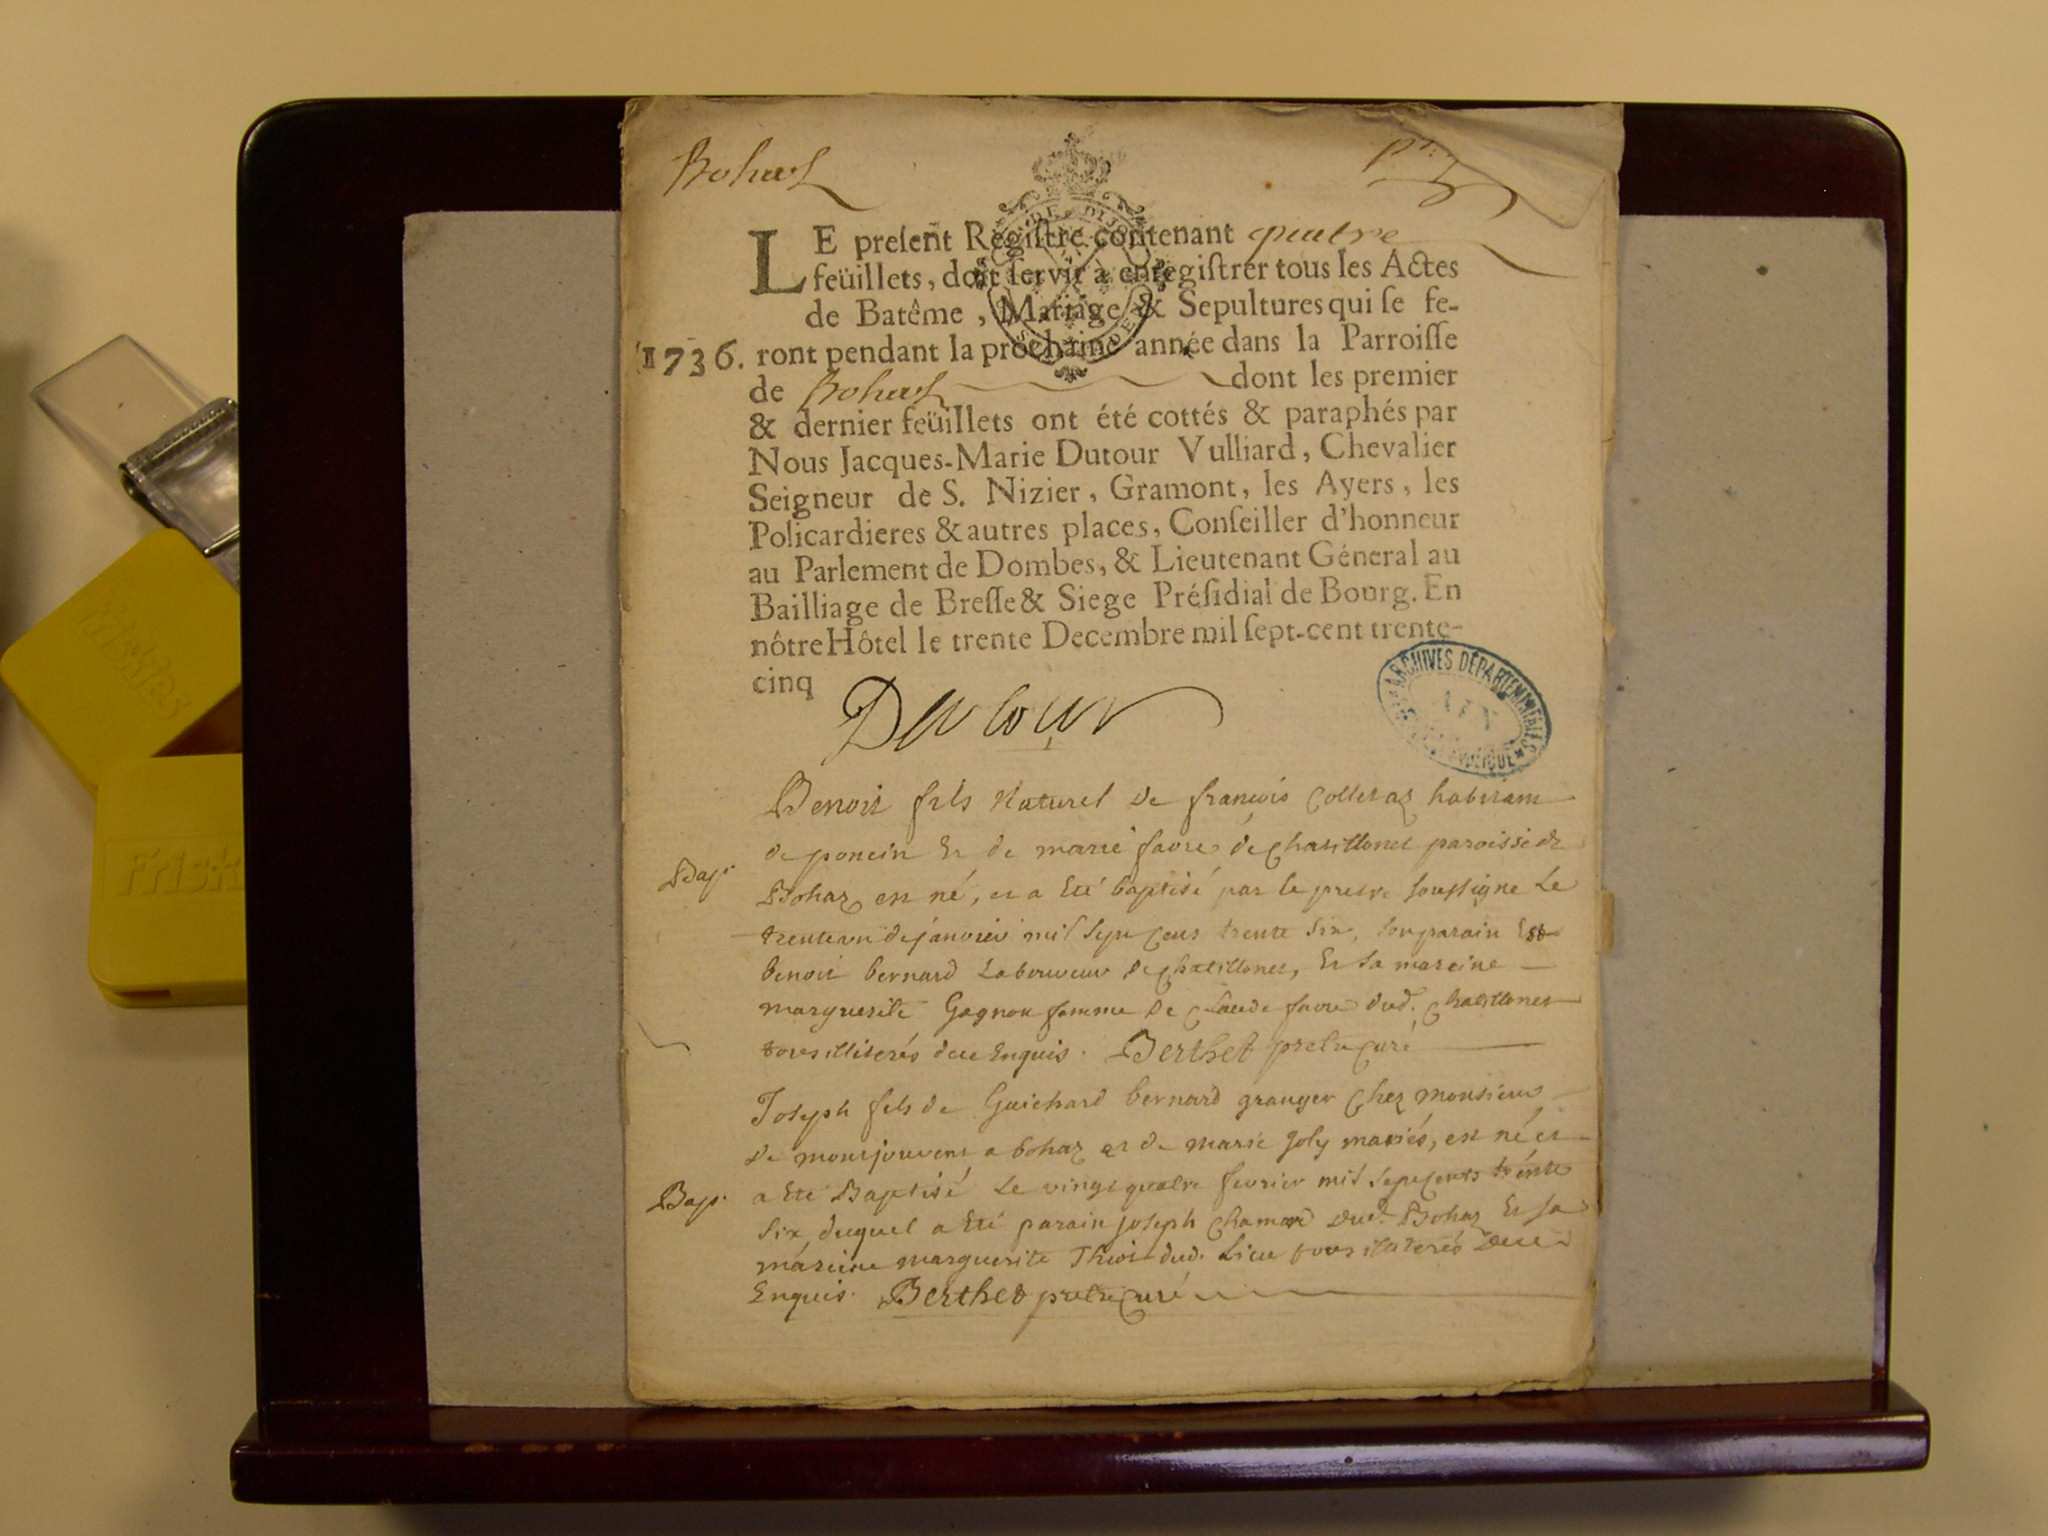 Bohas
LE preſent Regiſtre contenant quatre
feüillets, doit ſervir à enregiſtrer tous les Actes
de Batême, Mariage & Sepultures qui ſe fe-
1736. ront pendant la prochaine année dans la Parroiſſe
de Bohas dont les premier
& dernier feüillets ont été cottés & paraphés par
Nous Jacques-Marie Dutour Vulliard, Chevalier
Seigneur de S. Nizier, Gramont, les Ayers, les
Policardieres & autres places, Conſeiller d'honneur
au Parlement de Dombes, & Lieutenant Géneral au
Bailliage de Breſſe & Siege Préſidial de Bourg. En
nôtre Hôtel le trente Decembre mil ſept-cent trente-
cinq
Dutour
ARCHIVES DÉPARTEMENTALES
AIN
Benoit fils naturel de françois Colletaz habitant
de poncin Et de marie favre de Chatillonet paroisse de
Bap. Bohaz est né, et a Eté baptisé par le pretre soussigne Le
trenteun de janvier mil Sept Cens trente Six, Son parain Est
benoit bernard Laboureur de Chatillonet, Et Sa mareine
marguerite Gagnon femme de Claude favre dud. Chatillonet
tous illiterés de ce Enquis. Berthet pretre Curé
Joseph fils de Guichard bernard granger Chez monsieur
de montjouvent a bohaz et de marie Joly mariés, est né et
Bap. a Eté Baptisé Le vingt quatre fevrier mil Sept Cents trente
Six, duquel a Eté parain joseph Chamard dud. Bohaz Et Sa
mareine marguerite dud. Lieu tous illiterés de ce
Enquis. Berthet pretre Curé
Friskies
Frisk